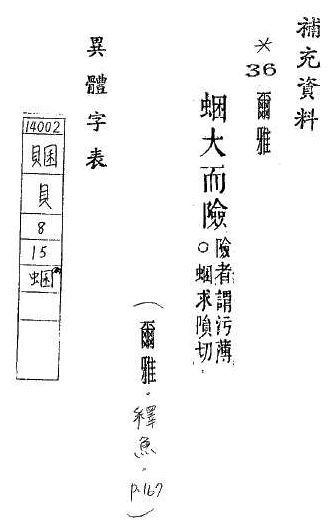 補充資料
*36 爾雅
蜠大而險
險者謂污薄
○蜠求隕切.
(爾雅.釋魚.p.167)
異體字表
14002
貝
8
15
蜠